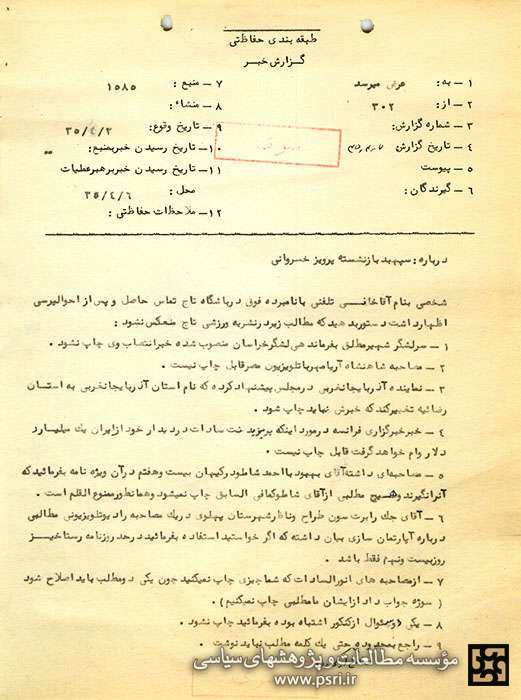 طبقه بندی حفاظتی
گزارش خبر
۱ – به : عرض میرسد
۲ – از : ۳۰۲
۳ – شماره گزارش :
۴ – تاریخ گزارش
۵ – پیوست
۶ – گیرندگان :
۷ – منبع : ۱۵۸۵
۸ – منشاء :
۹ – تاریخ وقوع : ۳۵/۴/۲
۱۰ – تاریخ رسیدن خبربمنبع :
۱۱ – تاریخ رسیدن خبربرهبرعملیات
محل : ۳۵/۴/۶
۱۲ – ملاحظات حفاظتی :
درباره : سپهبد بازنشسته پرویز خسروانی
شخصی بنام آقاخانی تلفنی بانامبرده فوق درباشگاه تاج تماس حاصل و پس از احوالپرسی
اظهارداشت دستوربدهید که مطالب زیردرنشریه ورزشی تاج منعکس نشود :
۱ – سرلشگر شهیرمطلق بفرماندهی لشگرخراسان منصوب شده خبرانتصاب وی چاپ نشود .
۲ – مصاحبه شاهنشاه آریامهرباتلویزیون مصرقابل چاپ نیست .
۳ – نماینده آذربایجانغربی درمجلس پیشنهادکرده که نام استان آذربایجانغربی به استان
رضائیه تغییرکند که خبرش نباید چاپ شود .
۴ – خبرخبرگزاری فرانسه درمورد اینکه پرزیدنت سادات دردیدار خود ازایران یک میلیارد
دلار وام خواهد گرفت قابل چاپ نیست .
۵ – مصاحبه‌ای داشته آقای بهبود بااحمد شاملودرکیهان بیست وهفتم درآن ویژه نامه بفرمائیدکه
آنرانگیرند وهیچ مطلبی ازآقای شاملوکمافی السابق چاپ نمیشود وهمانطورممنوع القلم است .
۶ – آقای جک رابرت سون طراح وناظرشهرستان پهلوی دریک مصاحبه رادیوتلویزیونی مطالبی
درباره آپارتمان سازی بیان داشته که اگر خواستید استفاده بفرمائید درحد روزنامه رستاخیز
روزبیست ونهم فقط باشد .
۷ – ازمصاحبه های انورالسادات که شماچیزی چاپ نمیکنید چون یکی دومطلب باید اصلاح شود
( سوژه جواب داد ازایشان مامطلبی چاپ نمیکنیم ) .
۸ – یکی دوسئوال ازکنکور اشتباه بوده بفرمائید چاپ نشود .
۹ – راجع بمحدوده حتی یک کلمه مطلب نباید نوشت .
مؤسسه مطالعات و پژوهشهای سیاسی
www.psri.ir